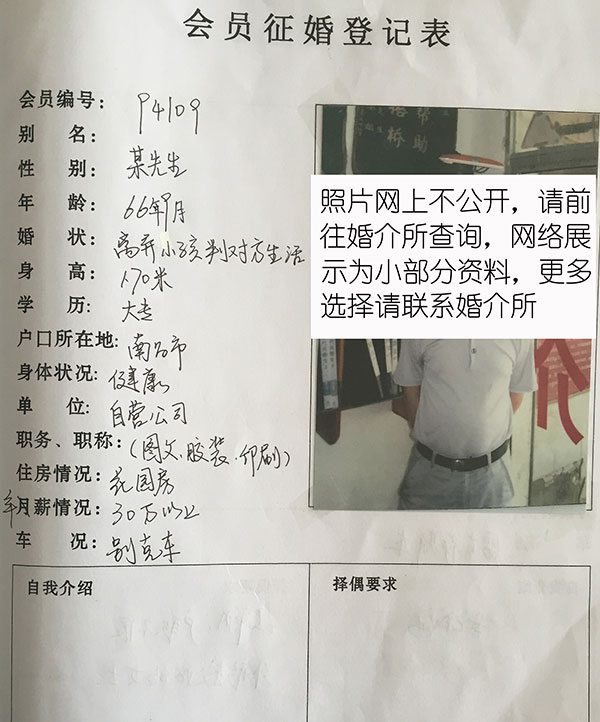 会员征婚登记表
会员编号: P4109
别 名:
性 别: 某先生
年 龄: 66年9月
婚 状: 离异小孩判对方生活
身 高: 1.70米
学 历: 大专
户口所在地: 南名市
身体状况: 健康
单 位: 自营公司
职务、职称: (图文、胶装、印刷)
住房情况: 花园房
年月薪情况: 30万以上
车 况: 别克车
自我介绍
择偶要求
帮助
照片网上不公开，请前
往婚介所查询，网络展
示为小部分资料，更多
选择请联系婚介所